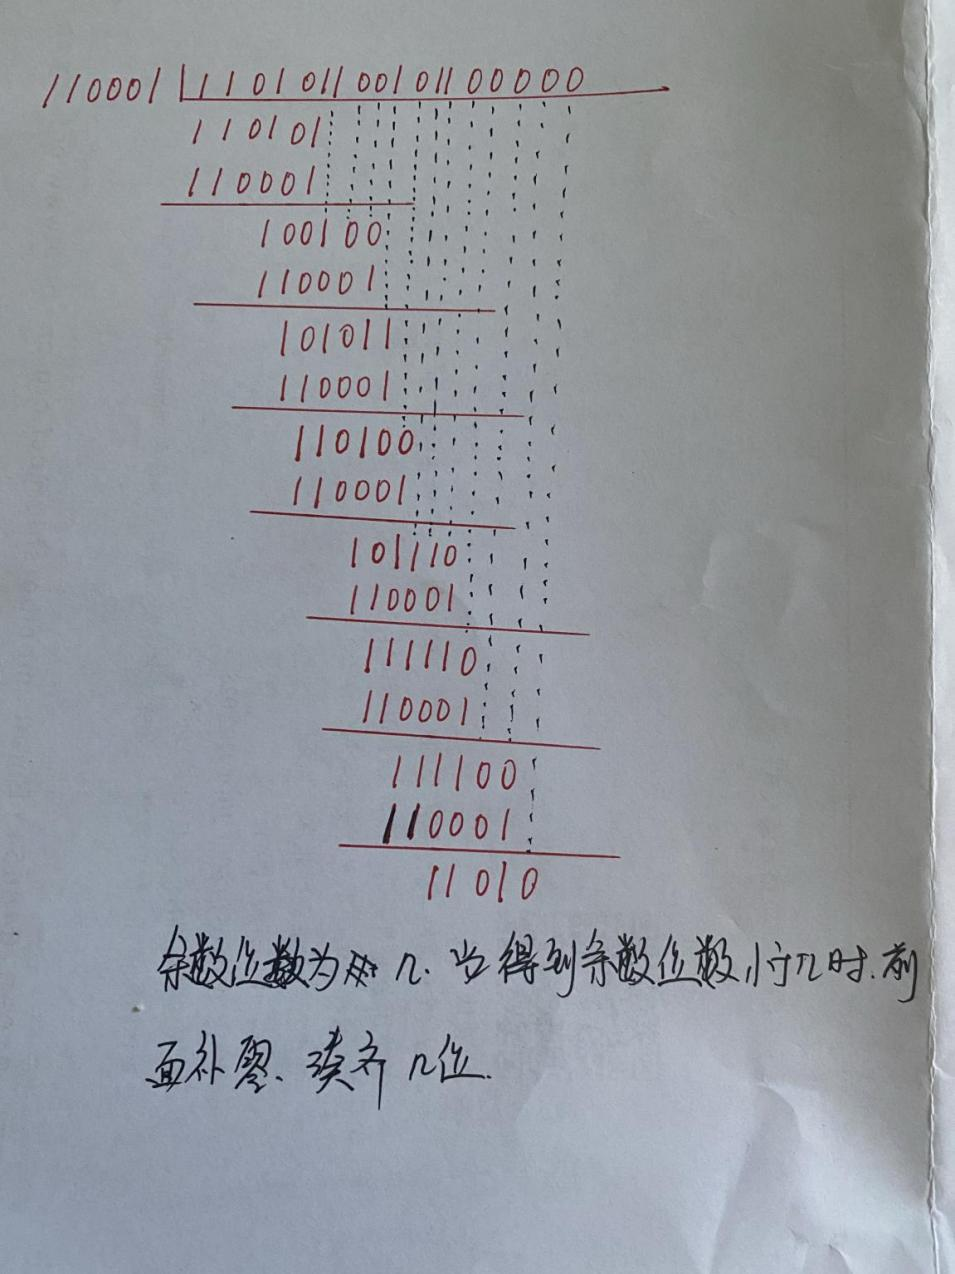 110001 110101100101100000
110101
110001
100100
110001
101011
110001
110100
110001
101110
110001
111110
110001
111100
110001
11010
余数位数为 n. 当得到余数位数小于n时.前
面补零、凑齐 n位.